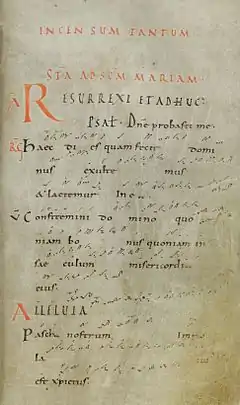 INCENSUM TANTUM
STA AD SCM MARIAM
A RESURREXI ET ADHUC
PSAL Dne probasti me
RG Haec di es quam fecit domi
nus exulte mus
& laetemur In e
V Confitemini do mino quo
niam bo nus quoniam in
sae culum misericordi
eius.
ALLELUIA
Pascha nostrum Immo
la
est xpictus.